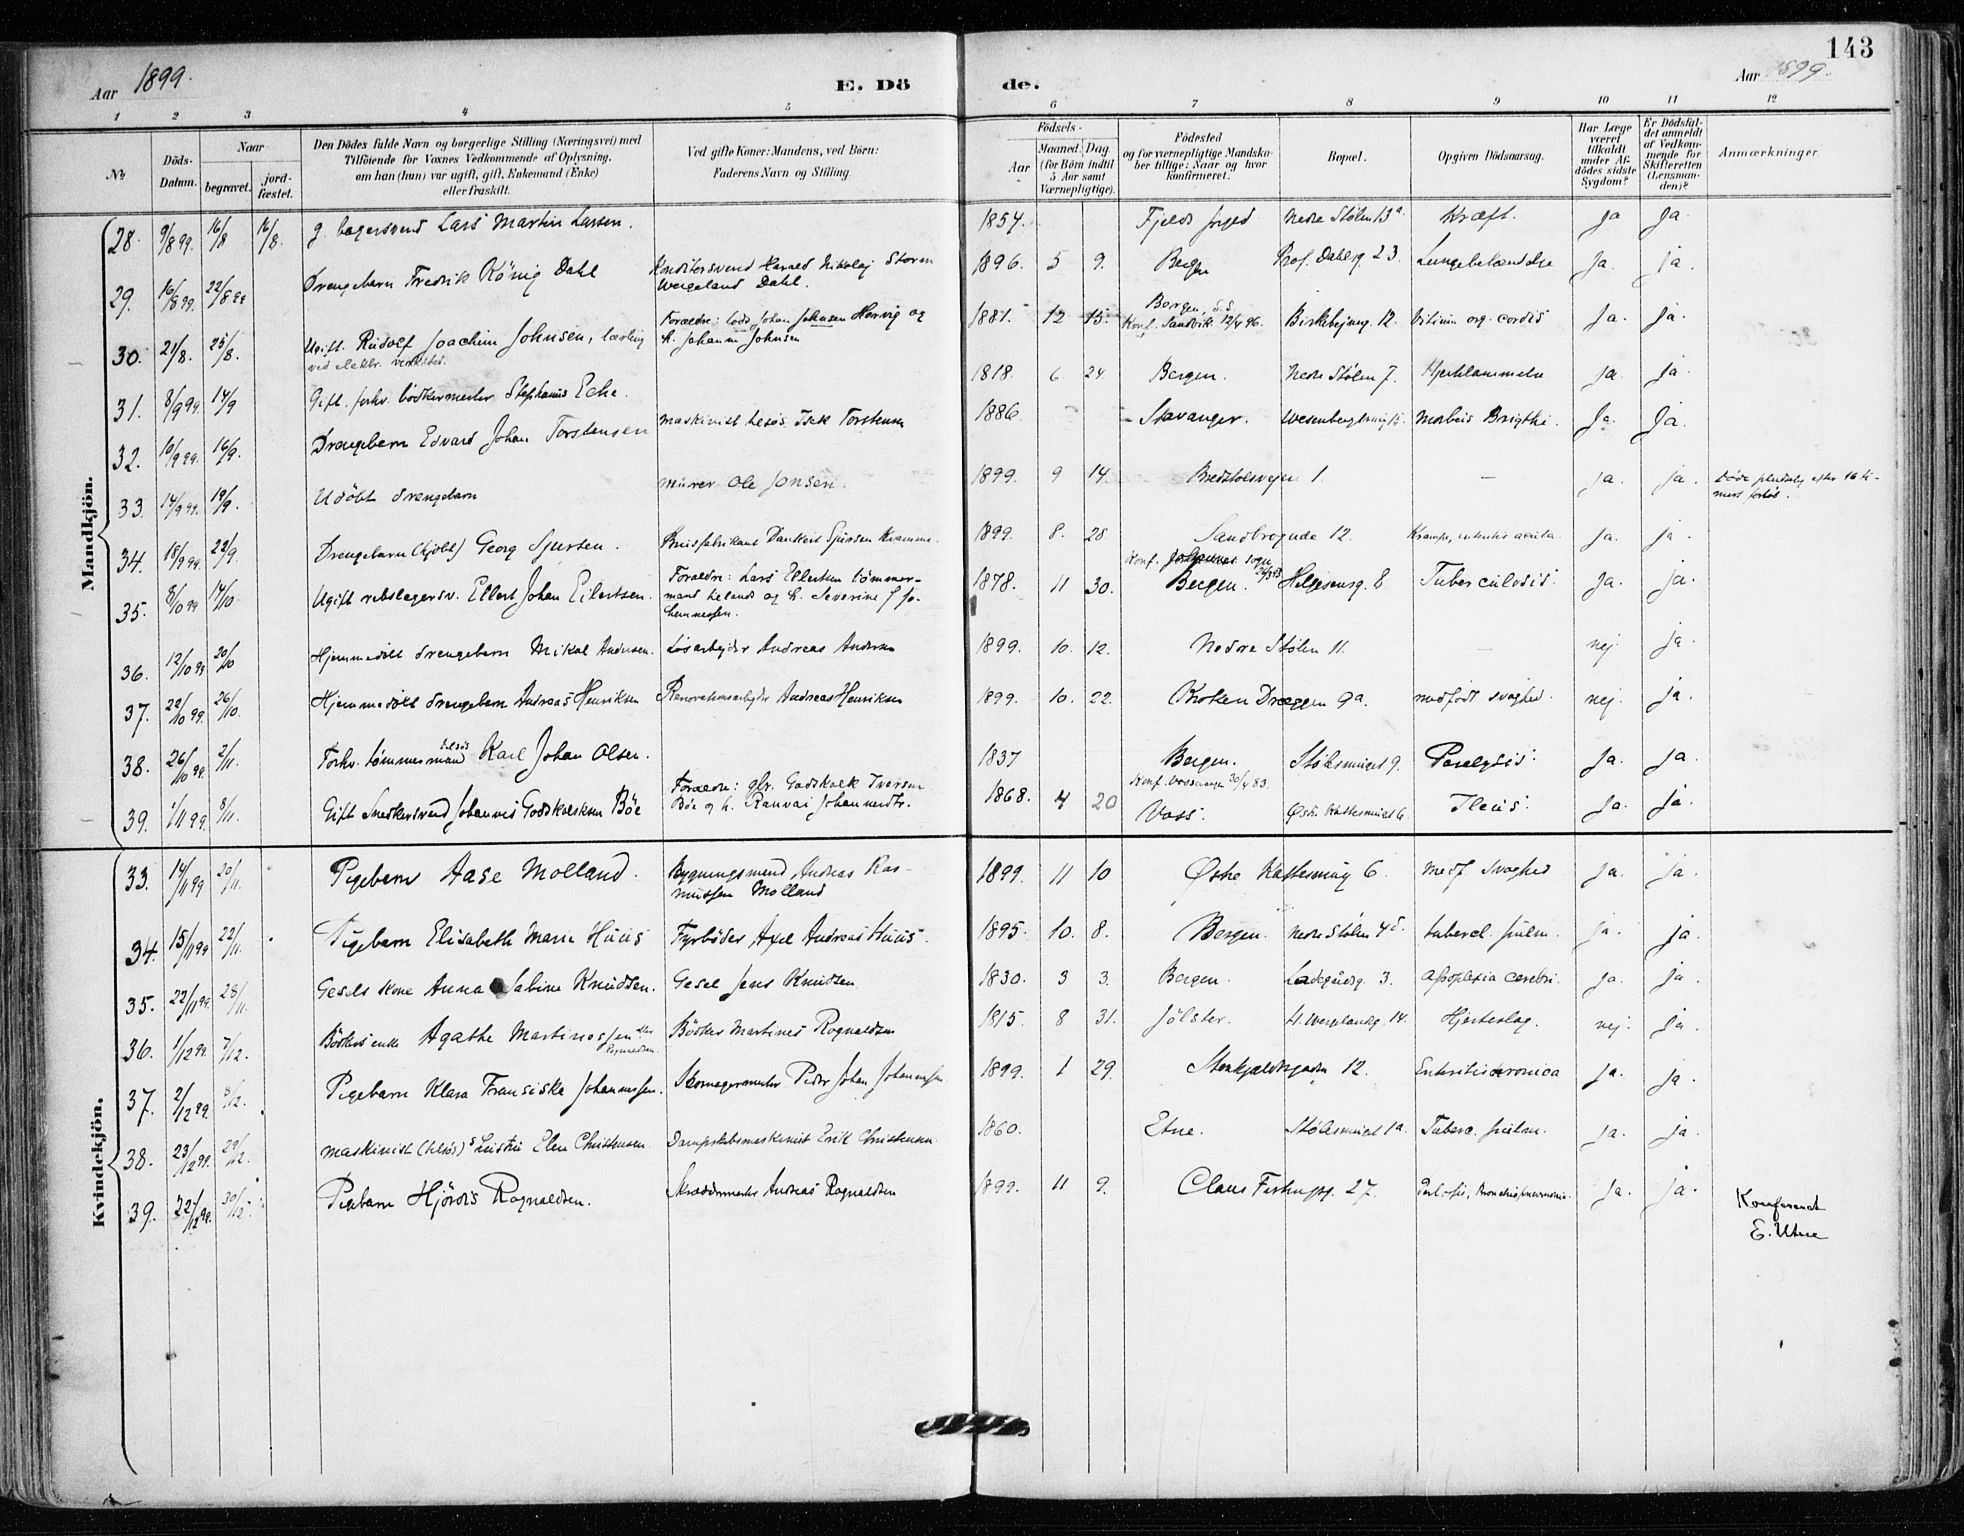 143
Aar 1899.
E. Dö
de.
Aar 1899.
1 2 3 4 5 6 7 8 9 10 11 12
No.
Döds-Datum.
Naar
begravet.
jord-fæstet.
Den Dödes fulde Navn og borgerlige Stilling (Næringsvei) med
Tilföiende for Voxnes Vedkommende af Oplysning,
om han (hun) var ugift, gift, Enkemand (Enke)
eller fraskilt.
Ved gifte Koner: Mandens, ved Börn:
Faderens Navn og Stilling.
Födsels-
Aar
Maaned.
Dag
(for Börn indtil
5 Aar samt
Værnepligtige).
Födested
og for værnepligtige Mandska-
ber tillige: Naar og hvor
konfirmeret.
Bopæl.
Opgiven Dödsaarsag.
Har Læge
været
tilkaldt
under Af-
dödes sidste
Sygdom?
Er Dödsfal-
det anmeldt
af Vedkom-
mende for
Skifteretten
(Lensman-
den)?
Anmærkninger.
Mandkjön.
28. 9/8 99. 16/8 16/8. g. bagersvend Lars Martin Larsen. 1854. Fjelds Nedre Stølen 13a Kræft. Ja Ja.
29. 16/8 99. 22/8 99 Drengebarn Fredrik König Dahl Konditersvend Harald Nikolaj Storm
Wergeland Dahl. 1896. 5 9. Bergen Prof. Dahlsg 23. Lungebetændelse Ja. ja.
30. 21/8. 25/8. Ugift. Rudolf Joachim Johnsen, lærling
Forældre: Johan Johnsen Horvig og
h. Johanne Johnsen 1881. 12 15. Bergen,
Konf. Sandvik 12/4 96. Birkebejnerg. 12. Vitium org. cordis Ja. ja.
31. 8/9 99. 14/9 Gift. forhv. bödkermester Stephanus Ecke. 1818. 6 24. Bergen. Nedre Stølen 7. Hjertelammelse Ja. ja.
32. 10/9 99. 16/9. Drengebarn Edvard Johan Torstensen maskinist Isak Torstensen 1886 Stavanger. Morbus Brigthi. Ja. Ja.
33. 14/9 99. 19/9. Udöbt drengebarn murer Ole Jonsen. 1899. 9 14. 1. — ja. ja. Döde pludselig efter 16 ti-
34. 18/9 99. 23/9. Drengebarn (hjdöbt) Georg Sjursen. 1899. 8. 28. Sandbrogade 12. Ja. ja.
35. 8/10 99 14/10 Ugift rebslagersv. Ellert Johan Eilertsen. Forældre: Lars Ellertsen tömmer-
mand og h. Severine f. Jo-
hannessen. 1878. 11 30. Konf. Johannes sogn
Bergen. Helgesensg. 8 Tuberculosis. Ja. ja.
36. 12/10 99 20/10 Hjemmedöbt drengebarn Mikal Andersen. Lösarbejder Andreas Andersen 1899. 10. 12. Nedre Stølen 11. — nej. ja.
37. 22/10 99. 26/10. Hjemmedöbt drengebarn Andreas Henriksen Renovationsarbejder Andreas Henriksen 1899. 10. 22. Kroken Dræggen 9a. medfödt svaghed. nej. ja.
38. 26/10 99. 2/11. Forhv. tömmermand Karl Johan Olsen. 1837 Bergen. Stölesmuget 9. Paralysis. Ja. Ja.
39. 1/11 99. 8/11. Gift Snedkersvend Johannes Godskalksen Böe Forældre: Godskalk Iversen
Böe og h. Johannesdtr. 1868. 4 20 Konf. Vossevangen 30/4 83.
Voss. Østre Kattesmuget 6. Ileus. Ja. ja.
Kvindekjön.
33. 14/11 99 20/11. Pigebarn Aase Molland. Bygningsmand Andreas Ras-
mussen Molland 1899. 11 10 Østre Kattesmug 6. Medf. svaghed Ja. ja.
34. 15/11 99 22/11. Pigebarn Elisabeth Marie Huus Fyrböder Axel Andreas Huus. 1895. 10. 8. Bergen. Nedre Stølen 4d. tubercl. pulm. ja. ja.
35. 22/11 99. 28/11. Gesels kone Anna Sabine Knudsen. Gesel Jens Knudsen 1830. 3 3. Bergen. Ladegaardsg. 3. Apoplexia cerebri. Ja. ja
36. 1/12 99. 7/12. Bödkers enke Agathe Martinessen eller
Rognaldsen. Bödker Martines Rognaldsen 1815. 8 31. Jölster. 14. Hjerteslag. nej. ja.
37. 2/12 99. 8/12. Pigebarn Klara Fransiska Johannessen. Skomagermester Peder Johan Johannessen. 1899. 1 29. Stenkjeldergaden 12. Enteritis kronica Ja. ja.
38. 23/12 99. 29/12. maskinist hustru Elen Christensen. Dampskibsmaskinist Erik Christensen 1860. Etne. Stölesmuget 1a. Tuberc. pulm. ja. ja.
39. 22/12 99. 30/12. Pigebarn Hjördis Rognaldsen. Skræddermester Andreas Rognaldsen 1899. 11 9. 27. Bronchopneumonia. Ja. ja.
Konfereret
E. Utne